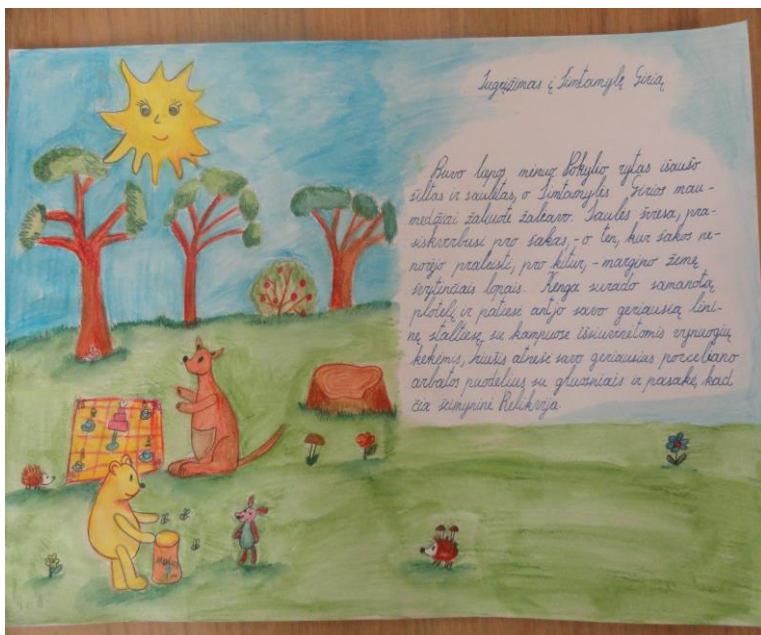 Sugrįžimas į Šimtamylę Girią
Buvo liepos mėnuo. Pokylio rytas išaušo
šiltas ir saulėtas, o Šimtamylės Girios mau-
medžiai žaliuote žaliavo. Saulės šviesa, pra-
siskverbusi pro šakas, - o ten, kur šakos ne-
norėjo praleisti, pro kitur, - margino žemę
švytinčiais lopais. Kenga surado samanotą
plotelį ir patiesė antjo savo geriausią lini-
nę staltiesę su kampuose išsiuvinėtomis vynuogių
kekėmis, Triušis atnešė savo geriausius porceliano
arbatos puodelius su gluosniais ir pasakė, kad
čia šeimyninė Relikvija.